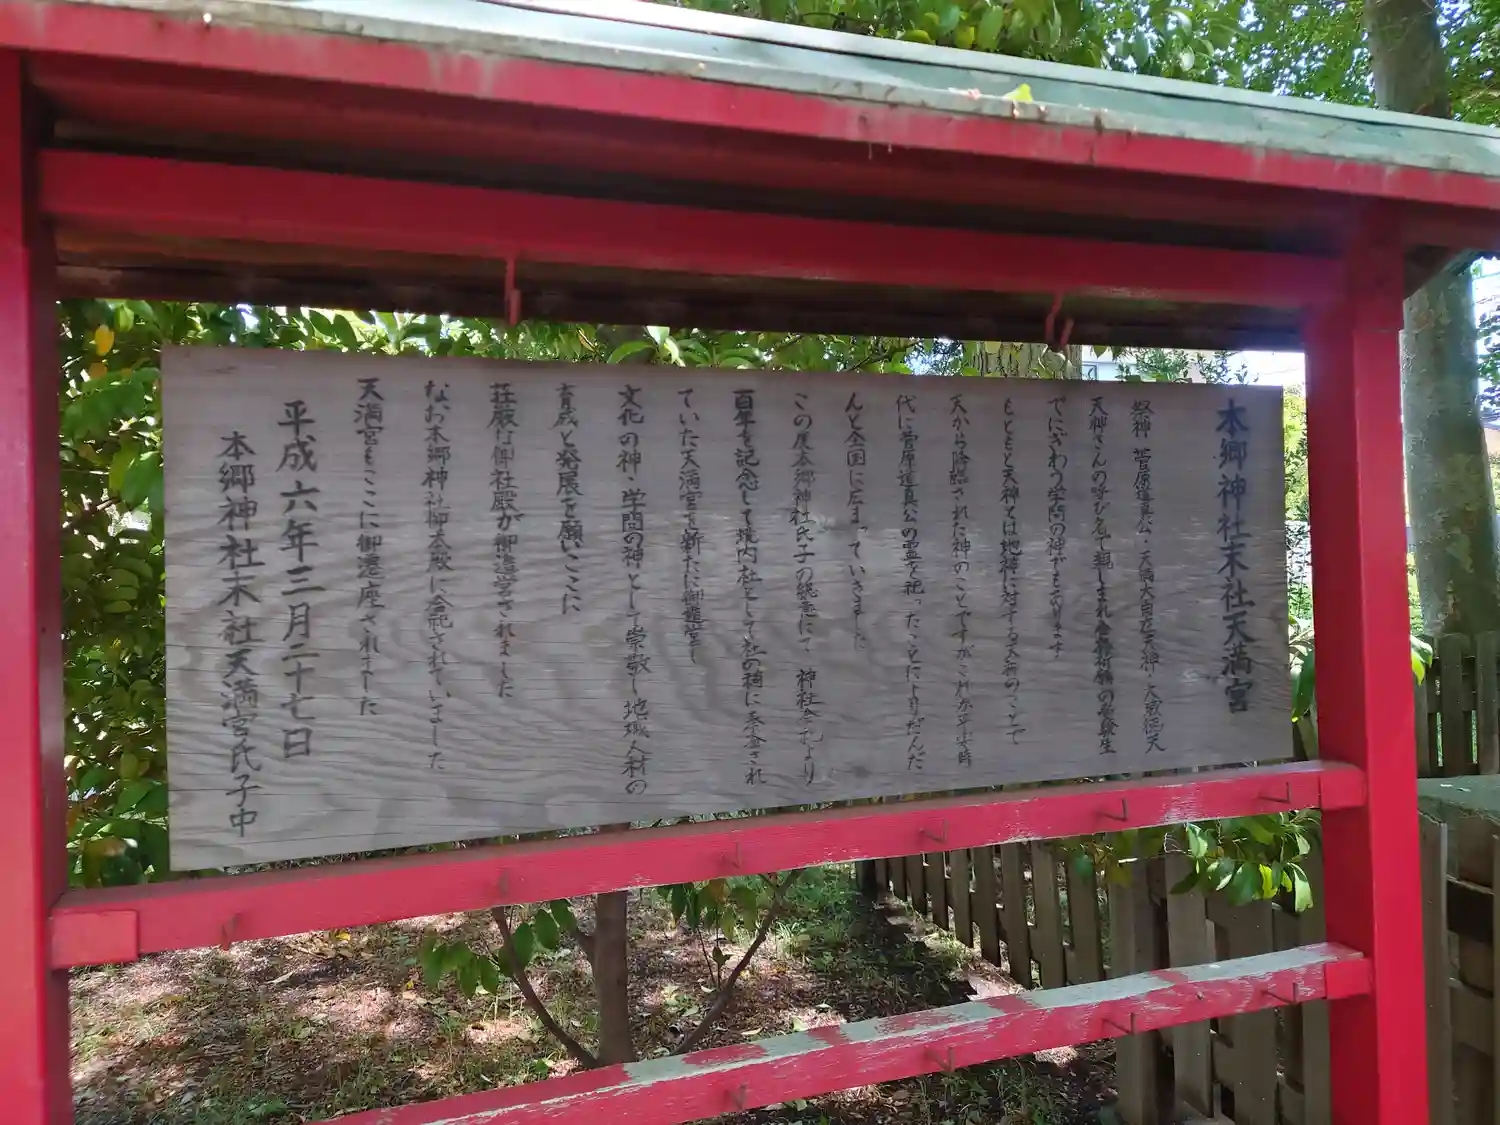 本郷神社末社天満宮
祭神 菅原道真公・天満大自在天神・大威徳天
天神さんの呼び名で親しまれ合格祈願の受験生
でにぎわう学問の神でもあります
もともと天神とは地神に対する天祈のことで
天から降臨された神のことですがこれが平安時
代に菅原道真公の霊を祀ったことによりだんだ
んと全国に広まっていきました
この度本郷神社氏子の総意にて 神社合祀より
百年を記念して境内社として社の禱に奉斎され
ていた天満宮を新たに御造営し
文化の神・学問の神として崇敬し地域人材の
育成と発展を願いここに
荘厳な御社殿が御造営されました
なお本郷神社御本殿に合祀されていました
天満宮もここに御遷座されました
平成六年三月二十七日
本郷神社末社天満宮氏子中